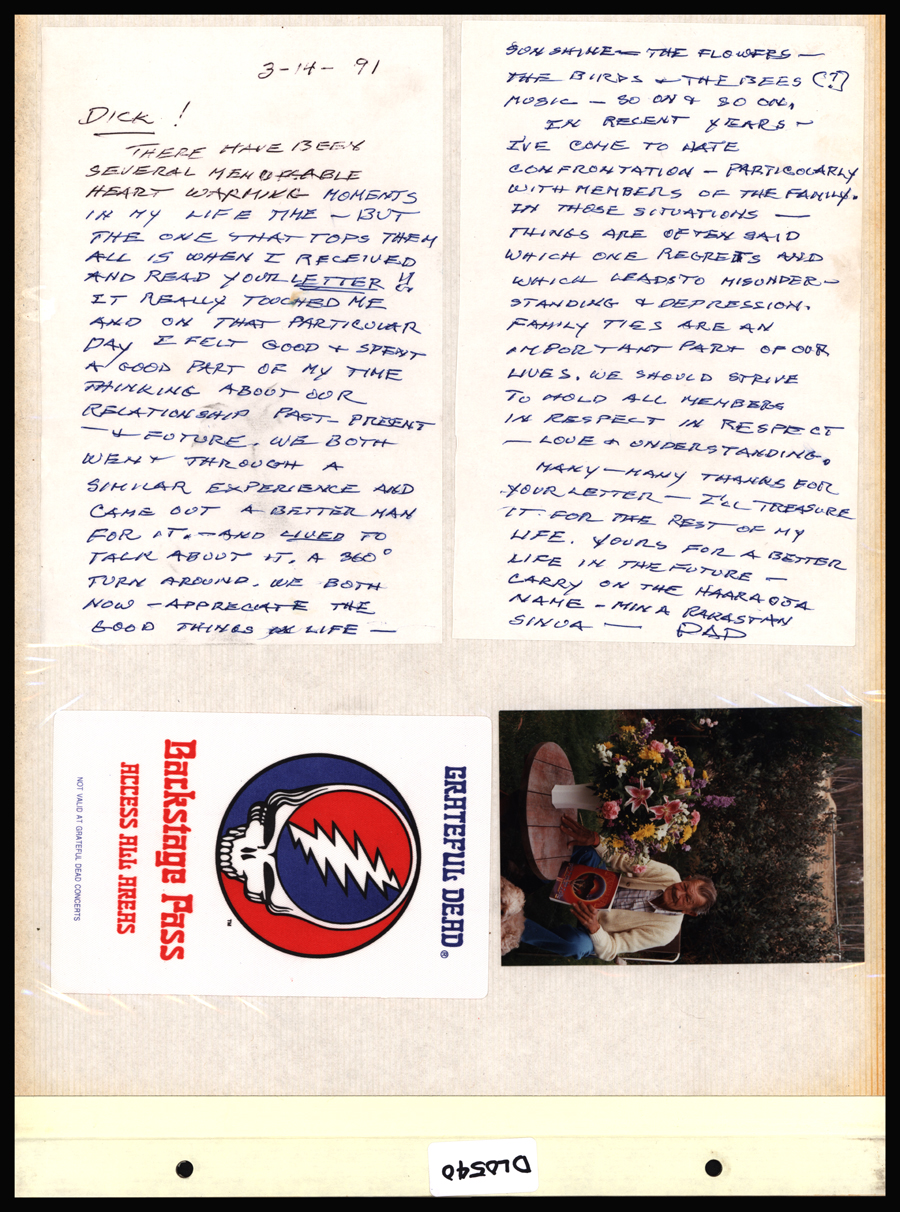 3-14-91
DICK!
THERE HAVE BEEN
SEVERAL MEMORABLE
HEART WARMING MOMENTS
IN MY LIFE TIME - BUT
THE ONE THAT TOPS THEM
ALL IS WHEN I RECEIVED
AND READ YOUR LETTER!!
IT REALLY TOUCHED ME
AND ON THAT PARTICULAR
DAY I FELT GOOD & SPENT
A GOOD PART OF MY TIME
THINKING ABOUT OUR
RELATIONSHIP PAST - PRESENT
- & FUTURE. WE BOTH
WENT THROUGH A
SIMILAR EXPERIENCE AND
CAME OUT A BETTER MAN
FOR IT. - AND LIVED TO
TALK ABOUT IT. A 360°
TURN AROUND. WE BOTH
NOW - APPRECIATE THE
GOOD THINGS IN LIFE -
SUNSHINE - THE FLOWERS -
THE BIRDS & THE BEES (?)
MUSIC - SO ON & SO ON.
IN RECENT YEARS -
I'VE COME TO HATE
CONFRONTATION - PARTICULARLY
WITH MEMBERS OF THE FAMILY.
IN THOSE SITUATIONS -
THINGS ARE OFTEN SAID
WHICH ONE REGRETS AND
WHICH LEADS TO MISUNDER-
STANDING & DEPRESSION.
FAMILY TIES ARE AN
IMPORTANT PART OF OUR
LIVES. WE SHOULD STRIVE
TO HOLD ALL MEMBERS
IN RESPECT IN RESPECT
- LOVE & UNDERSTANDING.
MANY - MANY THANKS FOR
YOUR LETTER - I'LL TREASURE
IT FOR THE REST OF MY
LIFE. YOURS FOR A BETTER
LIFE IN THE FUTURE -
CARRY ON THE HAARAOJA
NAME - MINA RAKASTAN
SINUA - DAD
GRATEFUL DEAD®
TM
Backstage Pass
ACCESS ALL AREAS
NOT VALID AT GRATEFUL DEAD CONCERTS
DL0540